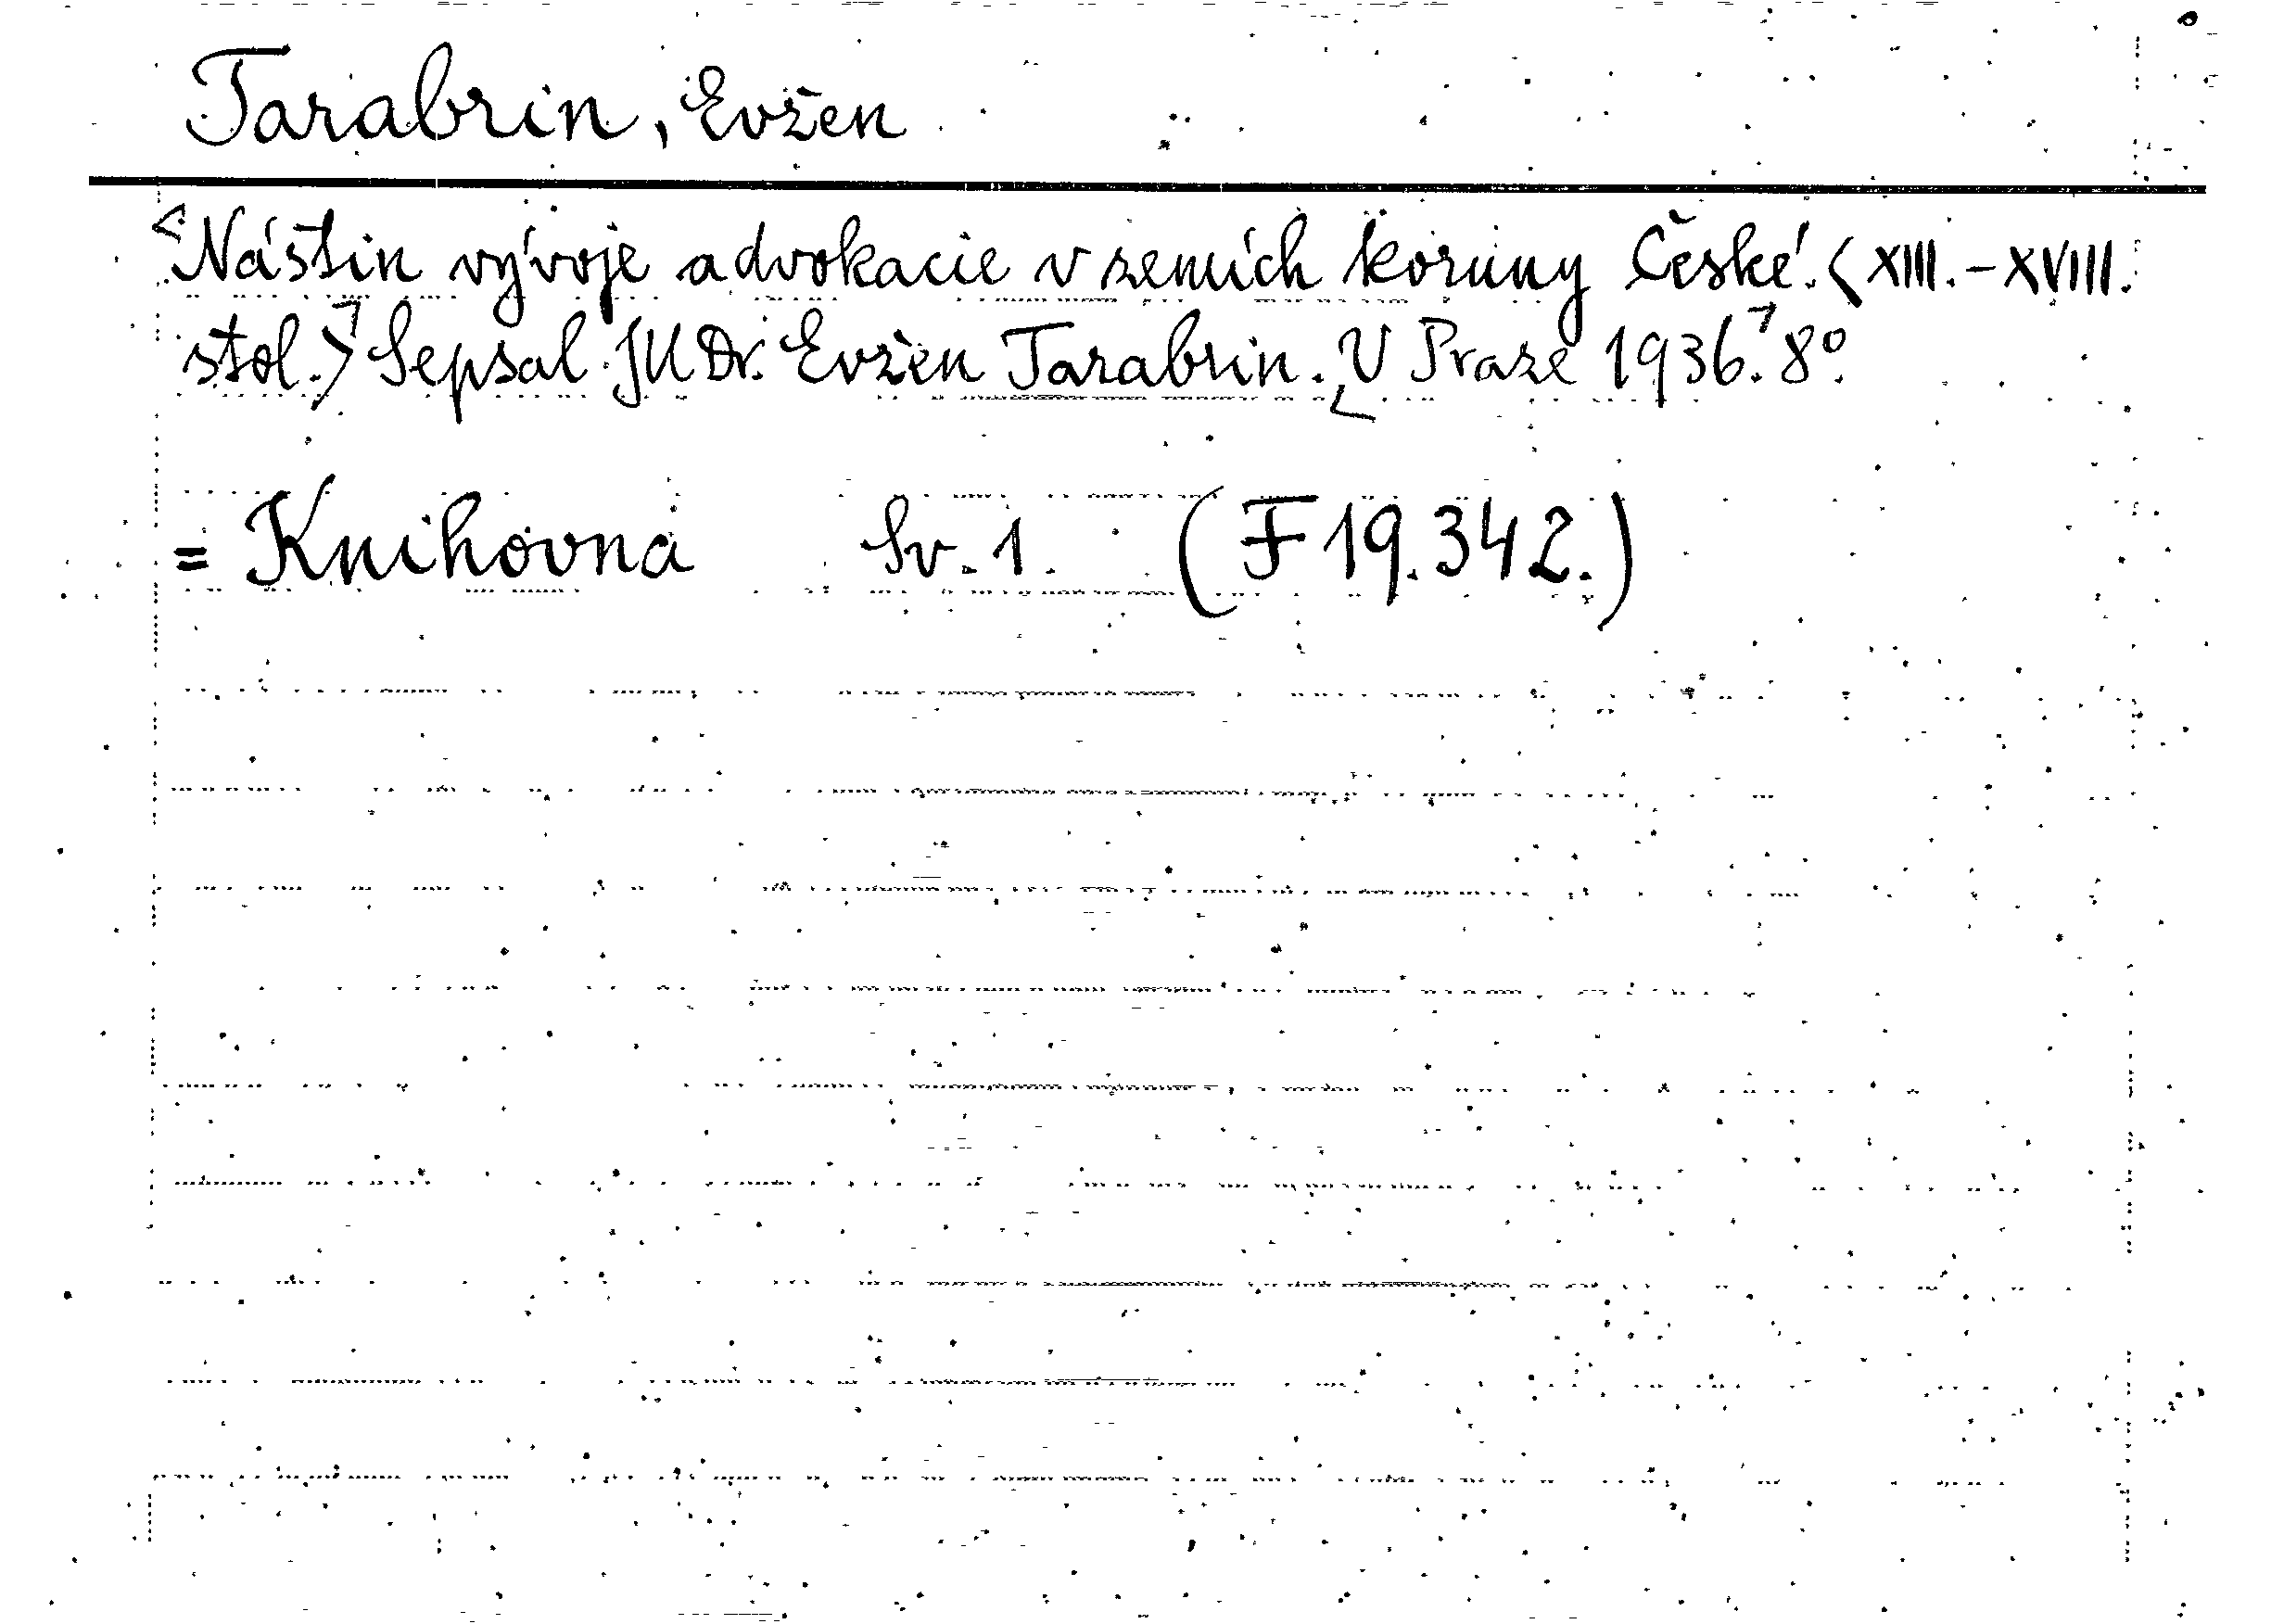 Tarabrin, Evžen
Nástin vývoje advokacie v zemích koruny České. <XIII. - XVIII.
stol.> Sepsal JUDr. Evžen Tarabrin. V Praze 1936. 8°.
= Knihovna Sv. 1. (F 19.342.)